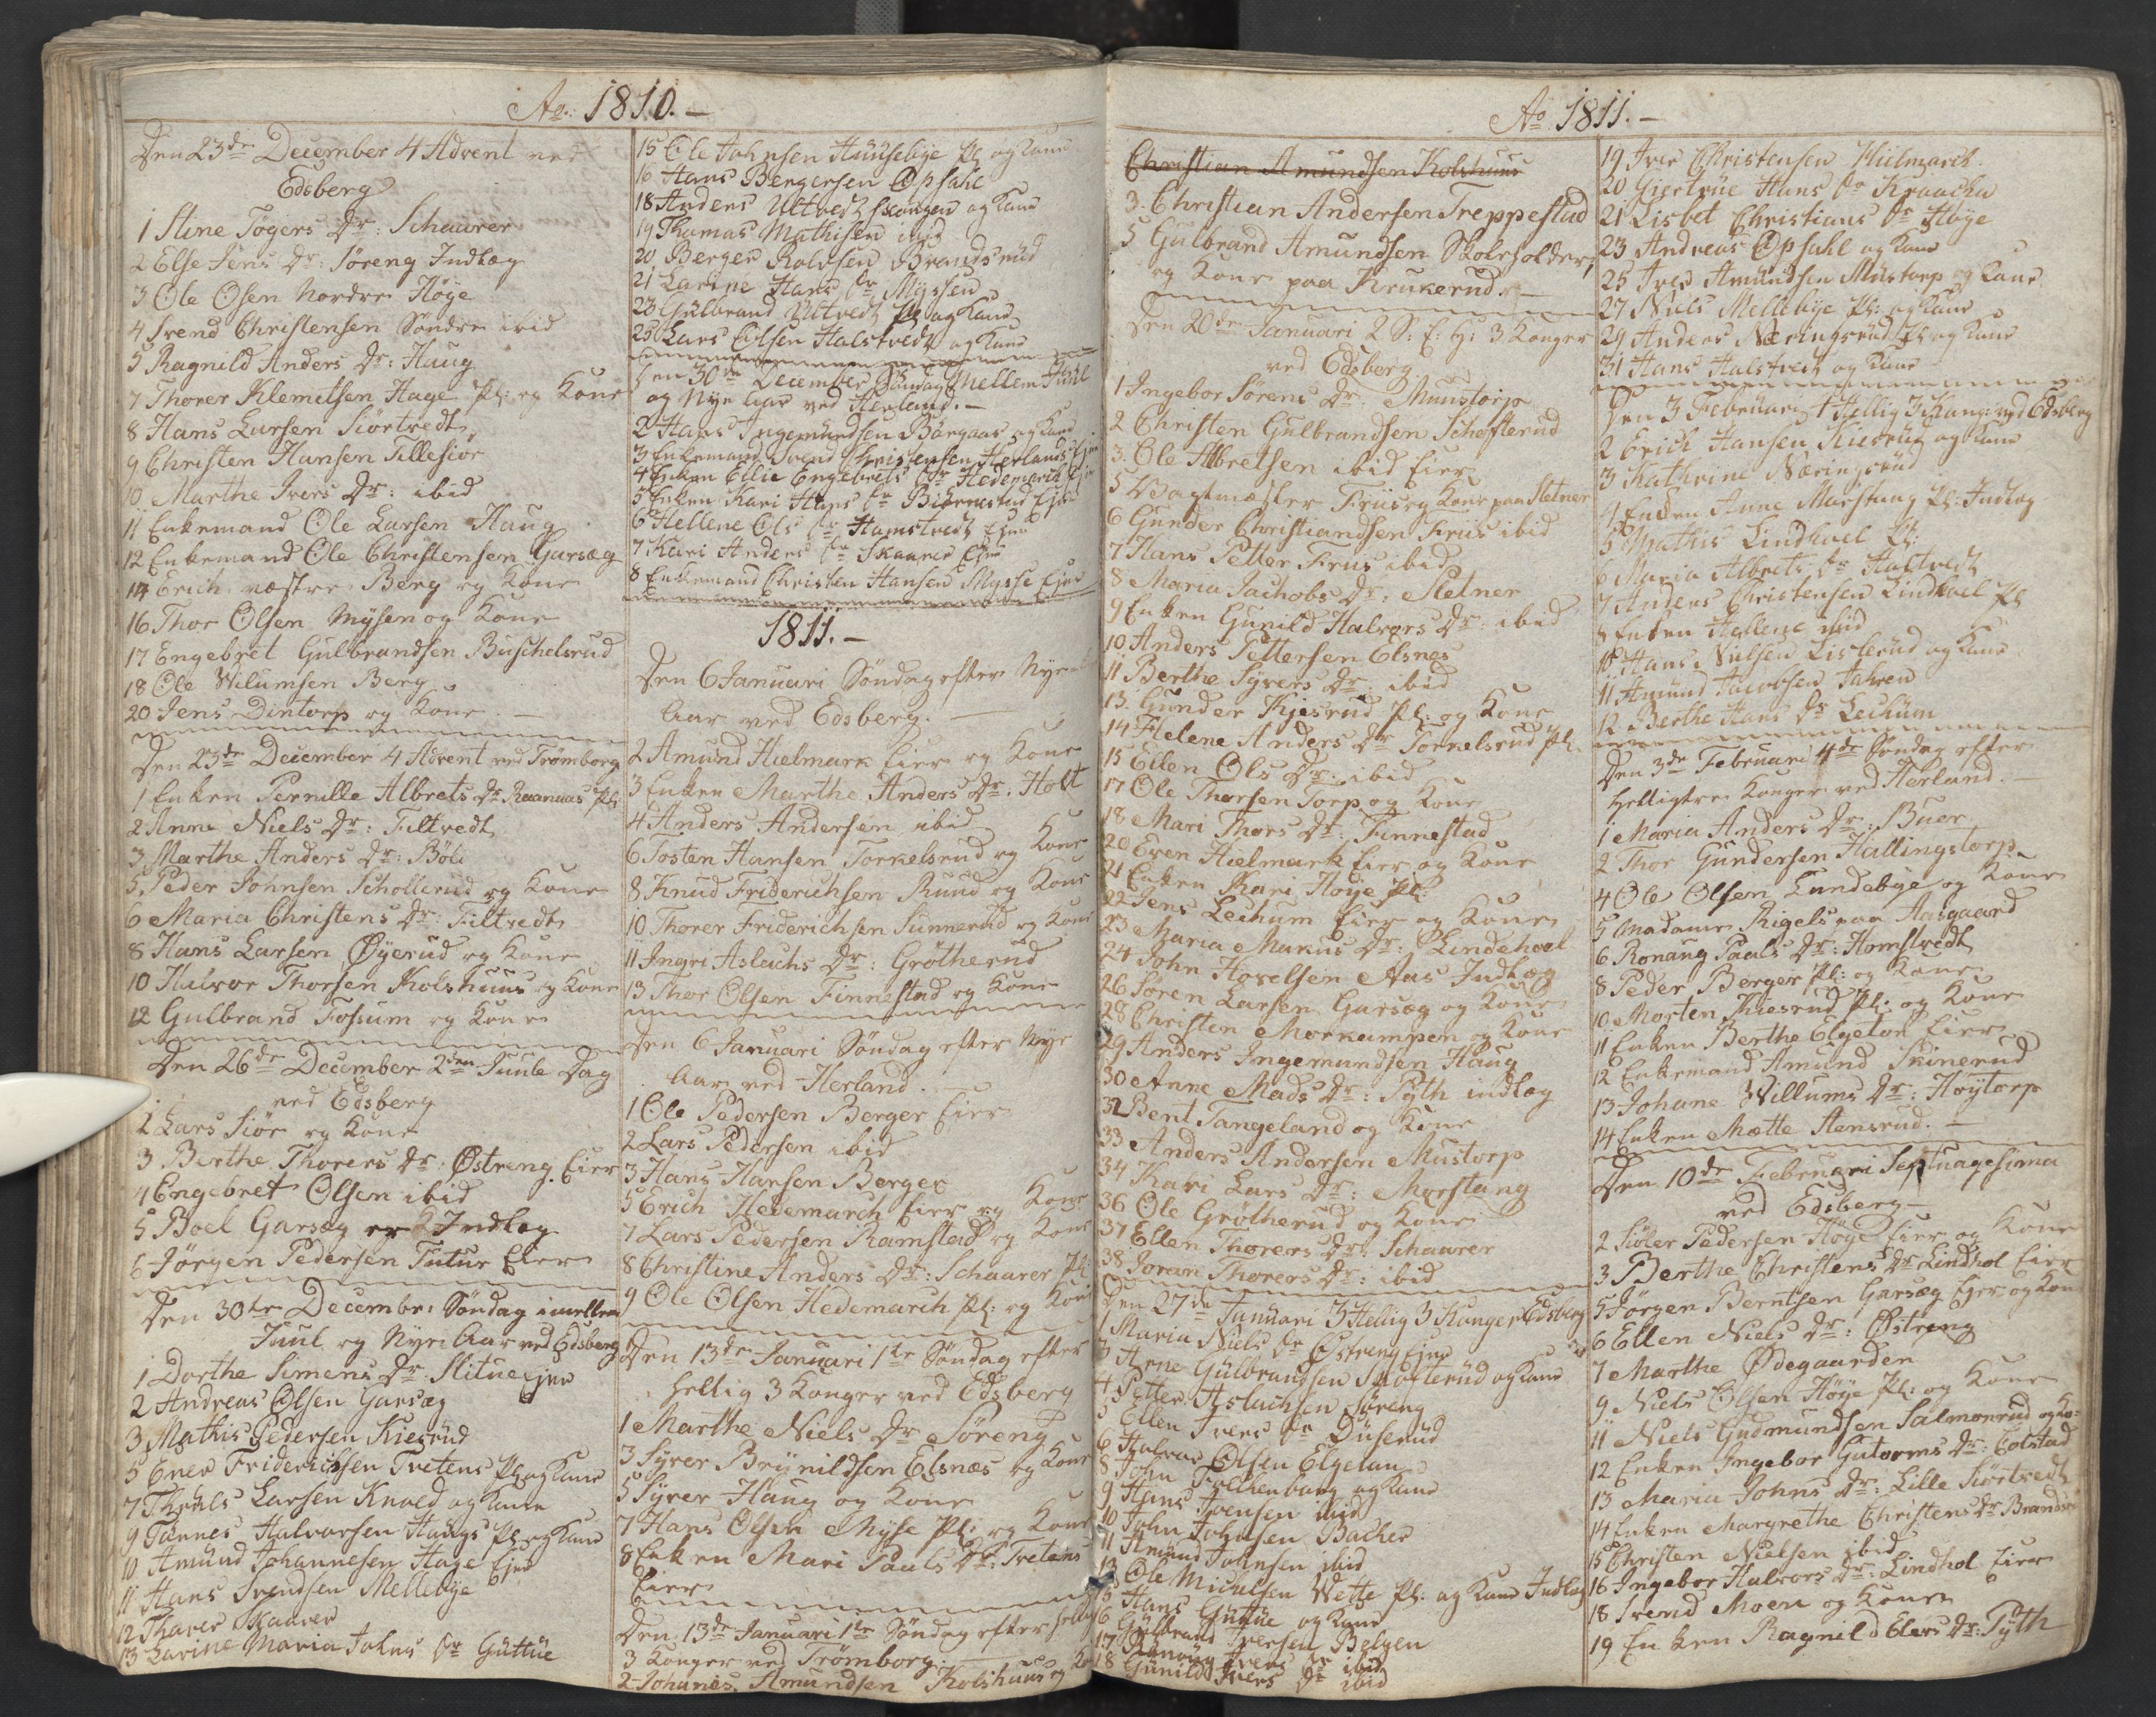 Ao: 1810. –
Den 23de December 4 Advent ved
Edsberg
1 Stine Tøgers Dr: Schaarer
2 Else Jens Dr: Søreng Indlæg
3 Ole Osen Nordre Høye
4 Svend Christensen Søndre ibid
5 Ragnild Anders Dr: Haug
7 Thorer Klemetsen Hage Pl: og Kone
8 Hans Larsen Siørtvedt
9 Christen Hansen Tillesiør
10 Marthe Ivers Dr: ibid
11 Enkemand Ole Larsen Haug
12 Enkemand Ole Christensen Garsæg
14 Erich væstre Berg og Kone
16 Thor Olsen Mysen og Kone
17 Engebret Gulbrandsen Buschelsrud
18 Ole Wilumsen Berg
20 Jens Dintorp og Kone –
Den 23de December 4 Advent ved Trømborg
1 Enken Pernille Albrets Dr Raanaas Pl:
2 Anne Niels Dr: Filtvedt
3 Marthe Anders Dr: Bøli
5 Peder Johnsen Schollerud og Kone
6 Maria Christens Dr: Filtvedt
8 Hans Larsen Øyerud og Kone
10 Halvor Thorsen Kolshuus og Kone
12 Gulbrand Fossum og Kone
Den 26de December 2den Juule Dag
ved Edsberg
2 Lars Siør og Kone
3 Berthe Thorers Dr: Østreng Eier
4 Engebret Olsen ibid
5 Boel Garsæg Indlæg
6 Jørgen Pedersen Tutur Eier
Den 30te December Søndag imellem
Juul og Nye Aar ved Edsberg
1 Dorthe Simens Dr Slitue Ejer
2 Andreas Olsen Garsæg
3 Mathis Pedersen Kiesrud
5 Ever Friderichsen Tretens Pl og Kone
7 Larsen Knold og Kone
9 Tannes Halvorsen Haugs Pl og Kone
10 Amund Johannesen Hage Ejer
11 Hans Svendsen Mellebye
12 Thorer Skaarer
13 Karine Maria Johns Dr Guttue
15 Ole Johnsen Huusebye Pl og Kone
16 Hans Bergersen Opsahl
18 Anders Ultvedt skougen og Kone
19 Thomas Mathisen ibid
20 Berger Rolvsen Brandsrud
21 Larine Hans Dr Myssen
23 Gulbrand Ultvedt Pl og Kone
25 Lars Olsen Halstvedt og Kone
Den 30te December Søndag Mellem Juhl
og Nye Aar ved Herland. –
2 Hans Ingemundsen Bargaas og Kone
3 Enkemand Svend Christensen Herlands Ejer
4 Enken Ellie Engebrets Dr Hedemarch Ejer
5 Enken Kari Hans Dr Biørnestad Ejer
6 Hellene Ols Dr Hamstvedt Ejer
7 Kari Anders Dr Skaarer Ejer
8 Enkemand Christen Hansen Mysse Ejer
1811. –
Den 6 Januari Søndag efter Nye
Aar ved Edsberg. –
2 Amund Hielmark Eier og Kone
3 Enken Marthe Anders Dr. Holt
4 Anders Andersen ibid
6 Tosten Hansen Torkelsrud og Kone
8 Knud Friderichsen Ruud og Kone
10 Thorer Friderichsen Sunnerud og Kone
11 Ingri Aslachs Dr: Grøtherud
13 Thor Olsen Finnestad og Kone
Den 6 Januari Søndag efter Nye
Aar ved Herland. –
1 Ole Pedersen Berger Eier
2 Lars Pedersen ibid
3 Hans Hansen Berger
5 Erich Hedemarch Eier og Kone
7 Lars Pedersen Ramstad og Kone
8 Christine Anders Dr: Schaarer Pl
9 Ole Olsen Hedemarch Pl: og Kone
Den 13de Januari 1te Søndag efter
Hellig 3 Konger ved Edsberg
1 Marthe Niels Dr Søreng
3 Syver Brynildsen Elsnæs og Kone
5 Syver Haug og Kone
7 Hans Olsen Myse Pl: og Kone
8 Enken Mari Pauls Dr: Tretens
Eier
Den 13de Januari 1te Søndag efter hellig
3 Konger ved Trømborg. –
2 Johanes Amundsen Kolshuus og Ko
Ao 1811. –
Christian Amundsen Kolshuus
3. Christian Andersen Treppestad
5 Gulbrand Amundsen Skoleholder
og Kone paa Krukerud. –
Den 20de Januari 2 S: E: H: 3 Konger
ved Edsberg
1 Ingebor Sørens Dr: Muustorp
2 Christen Gulbrandsen Schofterud
3. Ole Albretsen ibid Eier
5 Vagtmæster Friis og Kone paa Sletner
6 Gunder Christiandsen Friis ibid
7 Hans Petter Friis ibid
8 Maria Jachobs Dr: Sletner
9 Enken Gunild Halvors Dr: ibid
10 Anders Pettersen Elsnes
11 Berthe Syvers Dr: ibid
13. Gunder Kjesrud Pl: og Kone
14 Helene Anders Dr Torkelsrud Pl.
15 Ellen Ols Dr: ibid
17 Ole Thorsen Torp og Kone
18 Mari Thors Dr: Finnestad
20 Even Hielmark Eier og Kone
21 Enken Kari Høye Pl:
22 Jens Lechum Eier og Kone
23 Maria Makus Dr: Lindehoel
24 John Hovelsen Aas Indlæg
26 Søren Larsen Garsæg og Kone
28 Christen Morkampen og Kone
29 Anders Ingemundsen Haug
30 Anne Mads Dr: Pyth indlæg
32 Bent Tangeland og Kone
33 Anders Andersen Mustorp
34 Kari Lars Dr: Morstang
36 Ole Grøtherud og Kone
37 Ellen Thorers Dr: Schaarer
38 Joran Thorers Dr: ibid
Den 27de Januari 3 Hellig 3 Konger Edsberg
1 Maria Niels Dr Østreng Ejer
3 Arne Gulbrandsen Skofterud og Kone
4 Petter Aslachsen Søreng
5 Ellen Ivers Dr Duserud
6 Halvor Olsen Elgetun
8 John Falkenborg og Kone
9 Hans Joensen ibid
10 John Johnsen Backer
11 Amund Johnsen ibid
13 Ole Michelsen Wette Pl: og Kone Indlæg
15 Hans Guttue og Kone
16 Gulbrand Iversen Belgen
17 Rønoug Ivers Dr ibid
18 Gunild Ivers Dr ibid
19 Iver Christensen Hielmarch
20 Giertrue Hans Dr Kraacka
21 Lisbet Christians Dr Høye
23 Andreas Opsahl og Kone
25 Iver Amundsen Mustorp og Kone
27 Niels Mellebye Pl: og Kone
29 Anders Næringsrud Pl og Kone
31 Hans Halstvedt og Kone
Den 3 Februari 4 Hellig 3 Kong: ved Edsberg
2 Erich Hansen Kiesrud og Kone
3 Kathrine Næringsrud
4 Enken Anne Marstang Pl: Indlæg
5 Mathis Lindhoel Pl:
6 Maria Albrets Dr Haltvedt
7 Anders Christensen Lindhoel Pl
8 Enken Hellene ibid
10 Hans Nielsen Lislerud og Kone
11 Amund Jacobsen Jahren
12 Berthe Hans Dr Lechum
Den 3de Februari 4de Søndag efter
Helligtre Konger ved Herland.
1 Maria Anders Dr: Buer
2 Thor Gundersen Hallingstorp
4 Ole Olsen Lundebye og Kone
5 Madame Rigels paa Aasgaard
6 Ronaug Paals Dr: Homstvedt
8 Peder Berger Pl: og Kone
10 Morten Kiesrud Pl: og Kone
11 Enken Berthe Elgeton Eier
12 Enkemand Amund Skinerud
13 Johane Willums Dr: Høytorp
14 Enken Mætte Stensrud. –
Den 10de Februari Septuagesima
ved Edsberg –
2 Siøler Pedersen Høye Eier og Kone
3 Berthe Christens Dr Lindhol Eier
5 Jørgen Berntsen Garsæg Ejer og Kon
6 Ellen Niels Dr: Østreng
7 Marthe Ødegaarden
9 Niels Olsen Høye Pl: og Kone
11 Niels Gudmundsen Salmonrud og Ko:
12 Enken Ingebor Gutorms Dr: Colstad
13 Maria Johns Dr: Lille Siørtvedt
14 Enken Margrethe Christens Dr Brandsr
15 Christen Nielsen ibid
16 Ingebor Halvors Dr: Lindhol Eier
18 Svend Moen og Kone
19 Enken Ragnild Elers Dr: Pyth